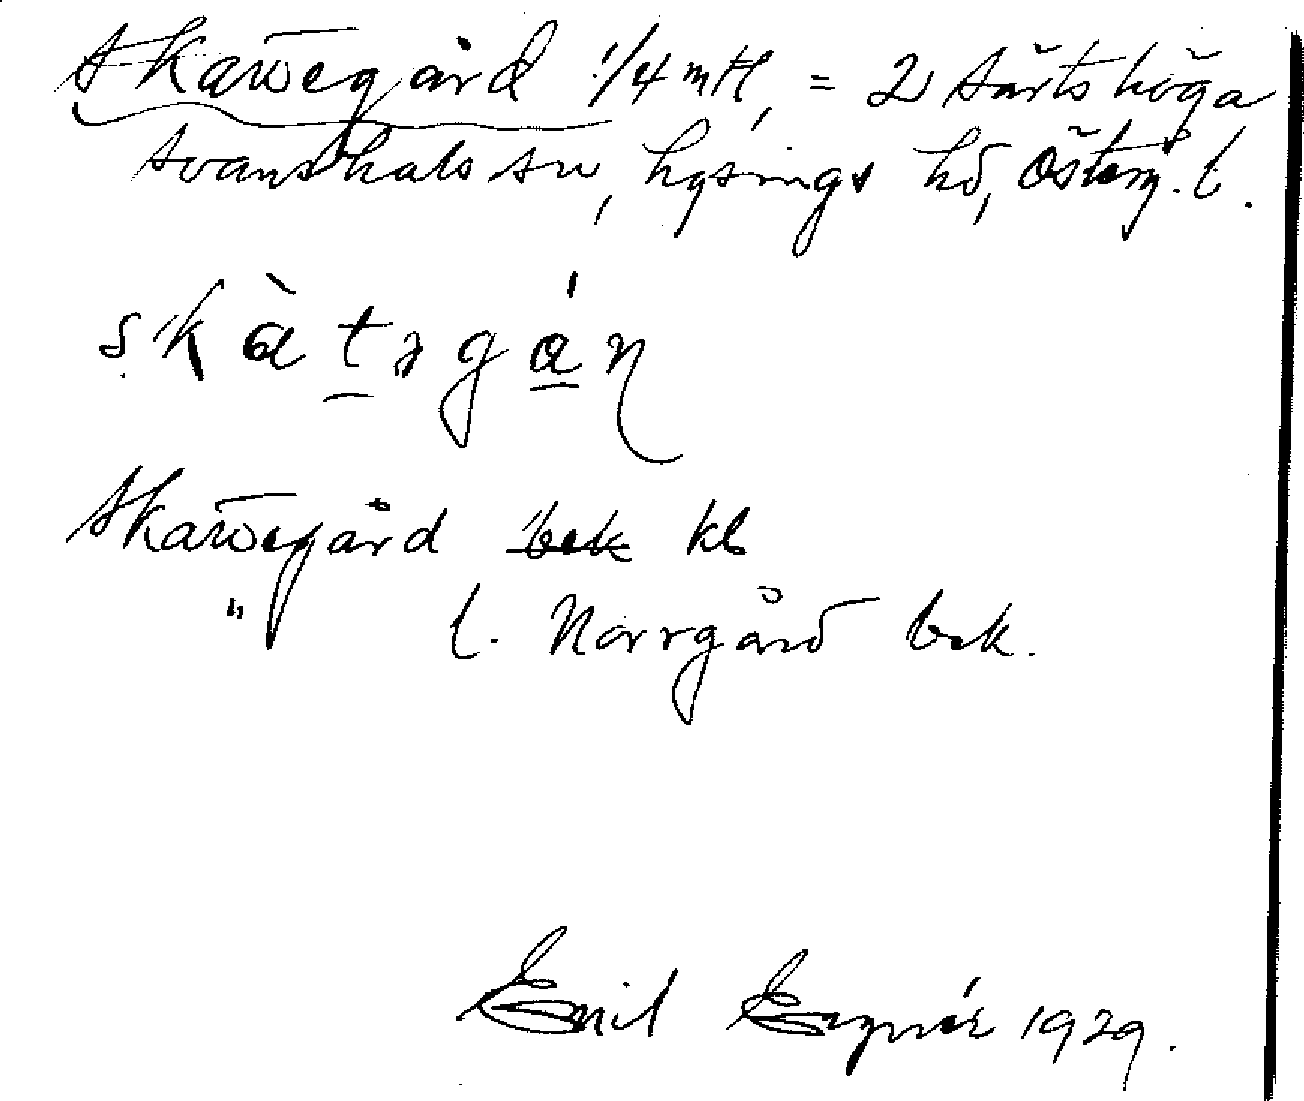 Skattegård 1/4 mtl, = 2 Särtshöga
Svanshals sn, Lysings hd, Österg. l.
skàtəgán
Skattegård bek kb
" l. Norrgård bek.
Emil 1929.